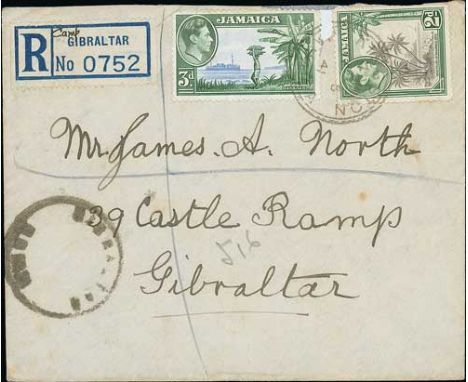 Camp
R GIBRALTAR
No 0752
JAMAICA
3d
JAMAICA
2D
Mr. James. A. North
39 Castle Ramp
516
Gibraltar